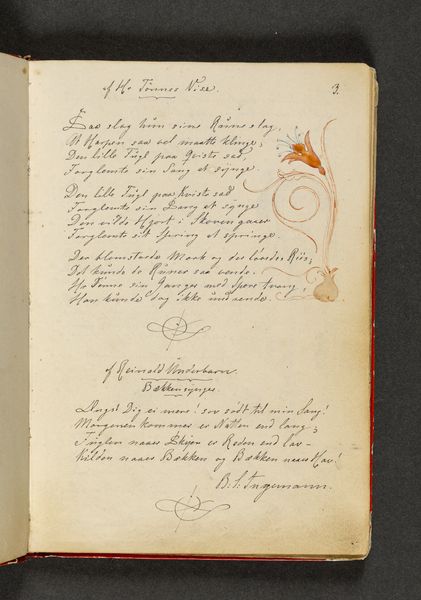 af Hr Tønnes Vise.
3.
Saa slog hun sine Runeslag,
At Harpen saa vel maatte klinge;
Den lille Fugl paa Qvisten sad,
Forglemte sin Sang at synge.
Den lille Fugl paa Kvisten sad
Forglemte sin Sang at synge
Den vilde Hjort i Skoven gaaer
Forglemte sit Spring at springe.
Da blomstrede Mark og der løvedes Riis;
Det kunde de Runer saa vende.
Hr Tønne sin Ganger med Spore tvang,
Han kunde dog ikke undrende.
af Reinald Underbarn.
Bækken synger.
Angst Dig ei mere! sov sødt til min Sang!
Morgenen kommer er Natten end lang;
Fuglen naaer Skyen er Reden end lav—
Kilden naaer Bækken og Bækken naaer Hav!
B. S. Ingemann.